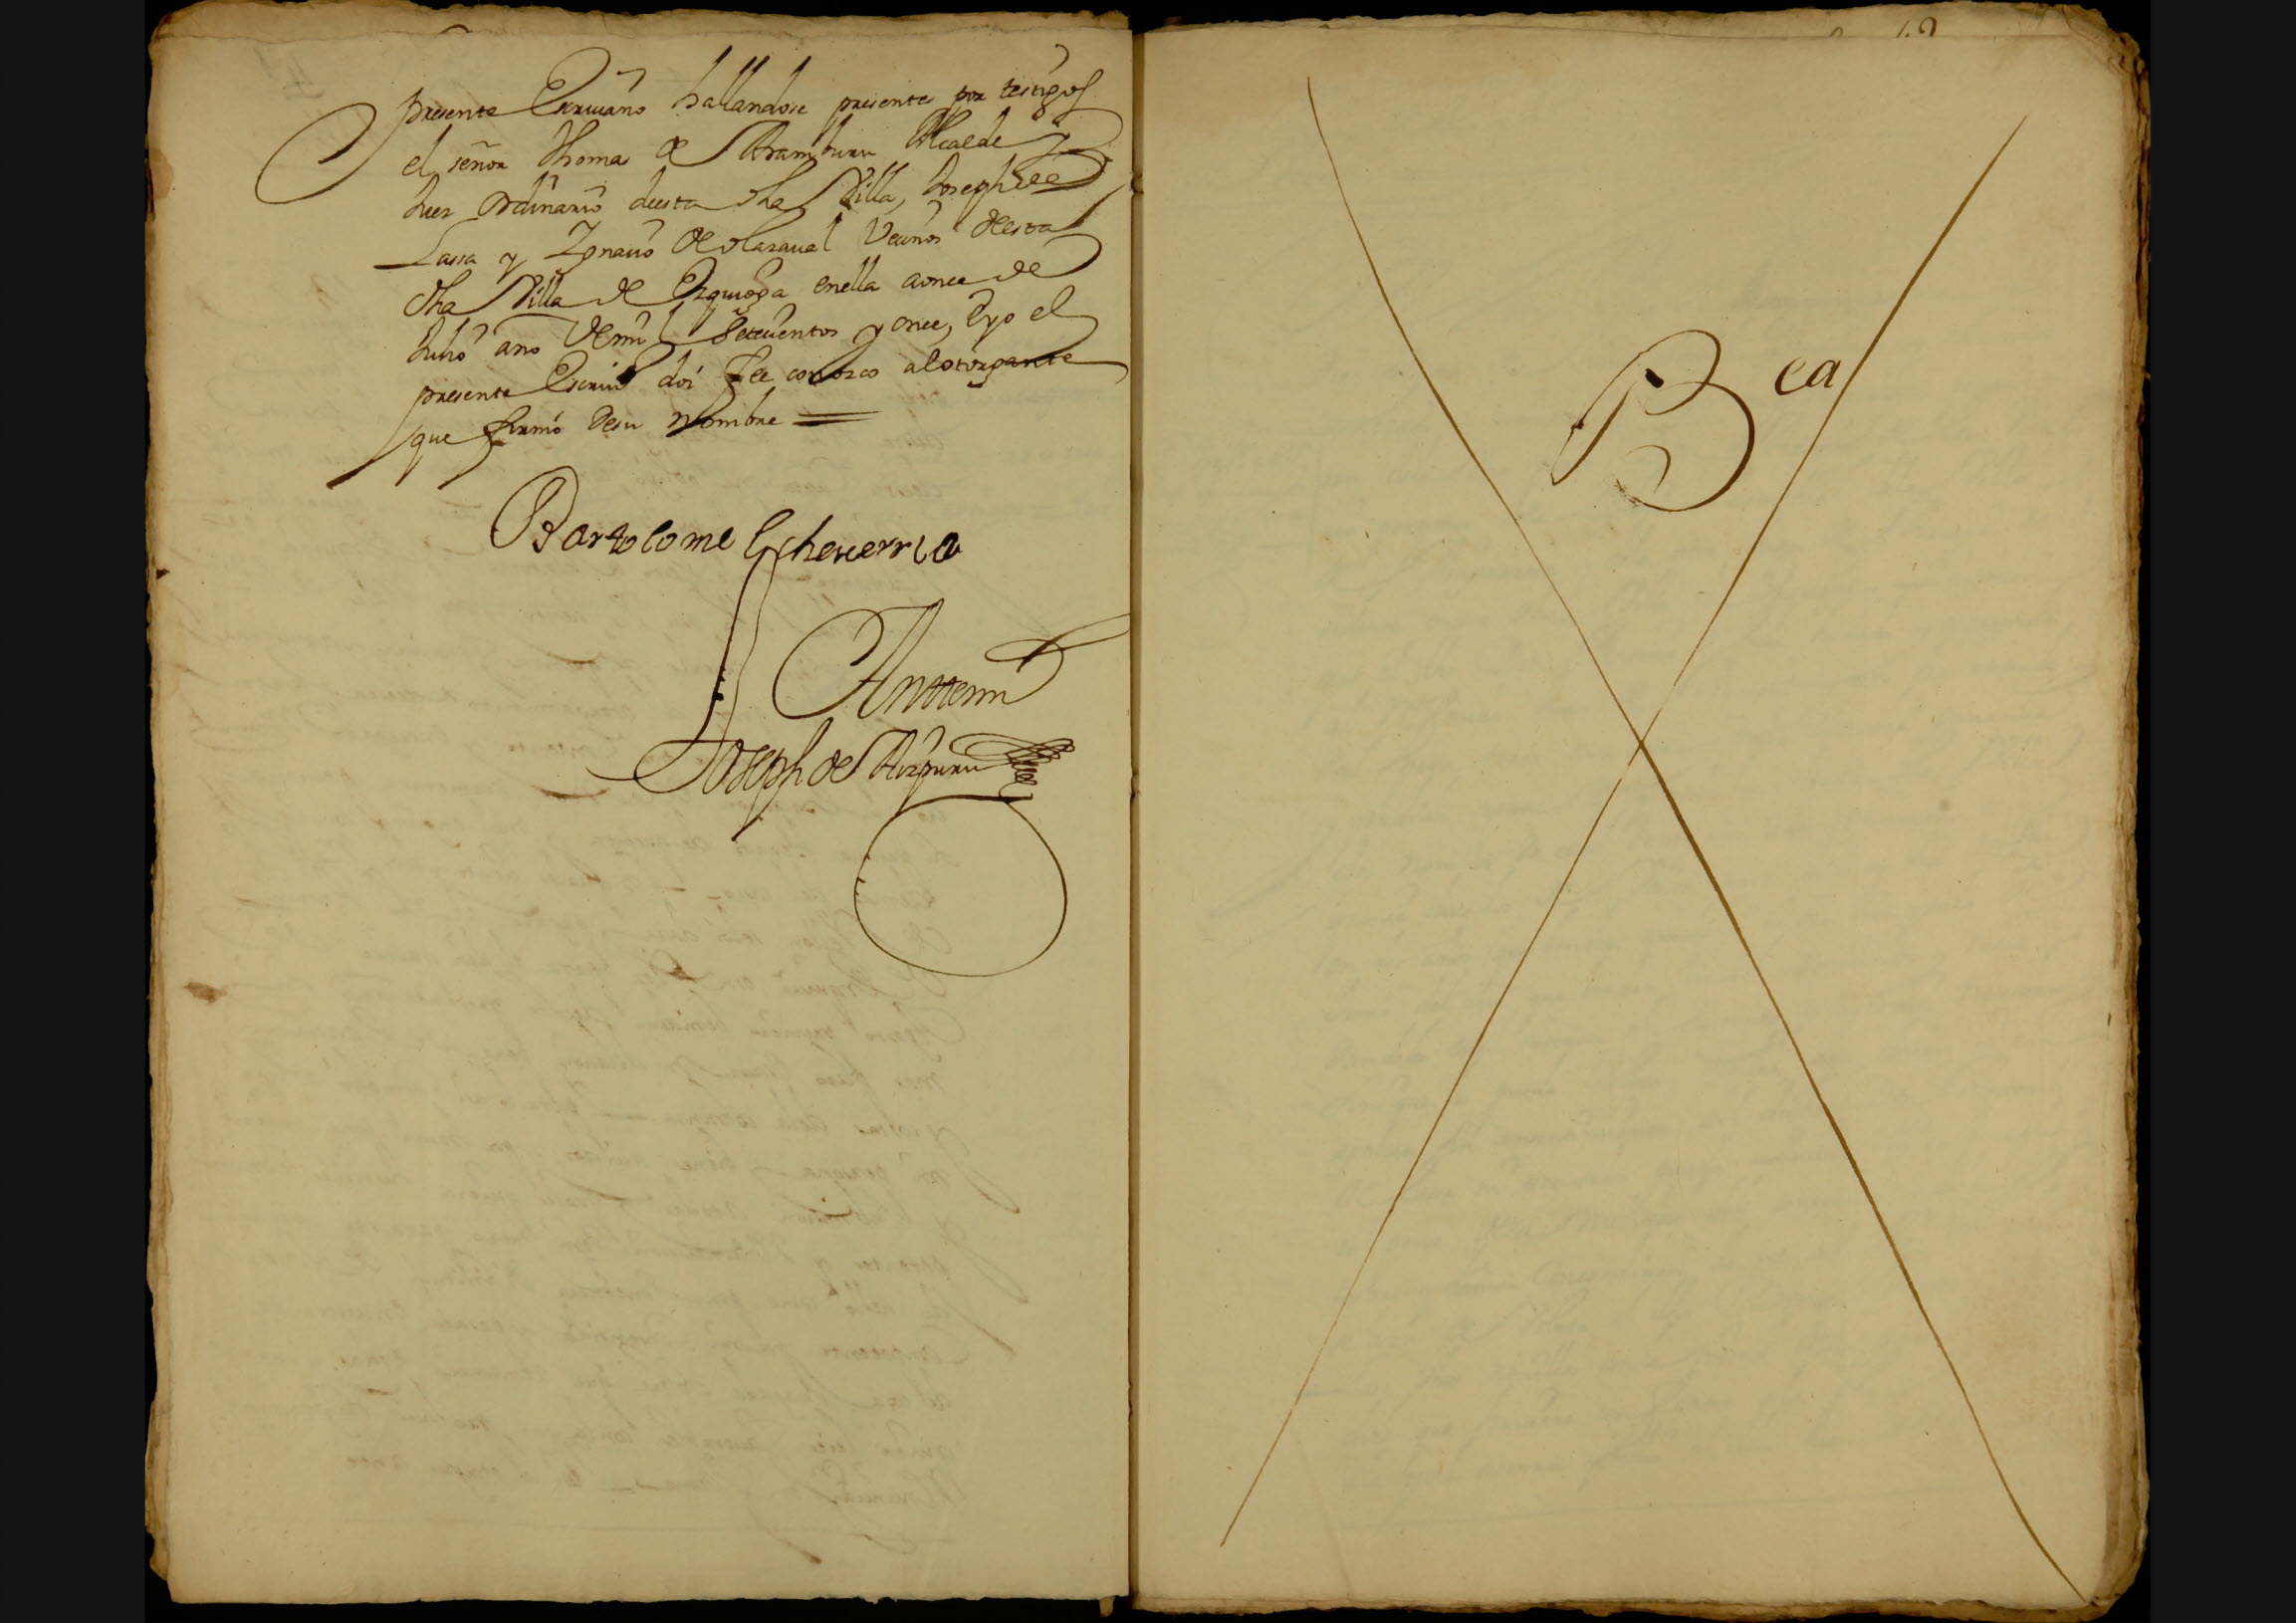 presente Escriuano hallandose presentes por testigos
el señor Thomas de Aramburu Alcalde y
Juez ordinario desta dha Villa, Joseph de
Lassa y Ygnacio de olazaual Vecinos desta
dha Villa de Ezquioga en ella a once de
Julio año de mil Setecientos y once, E yo el
presente Escriuº doi fee conozco al otorgante
que firmó de su nombre =
Bartolome Echeverria
Ante mi
Joseph de Aizpuru
Bca